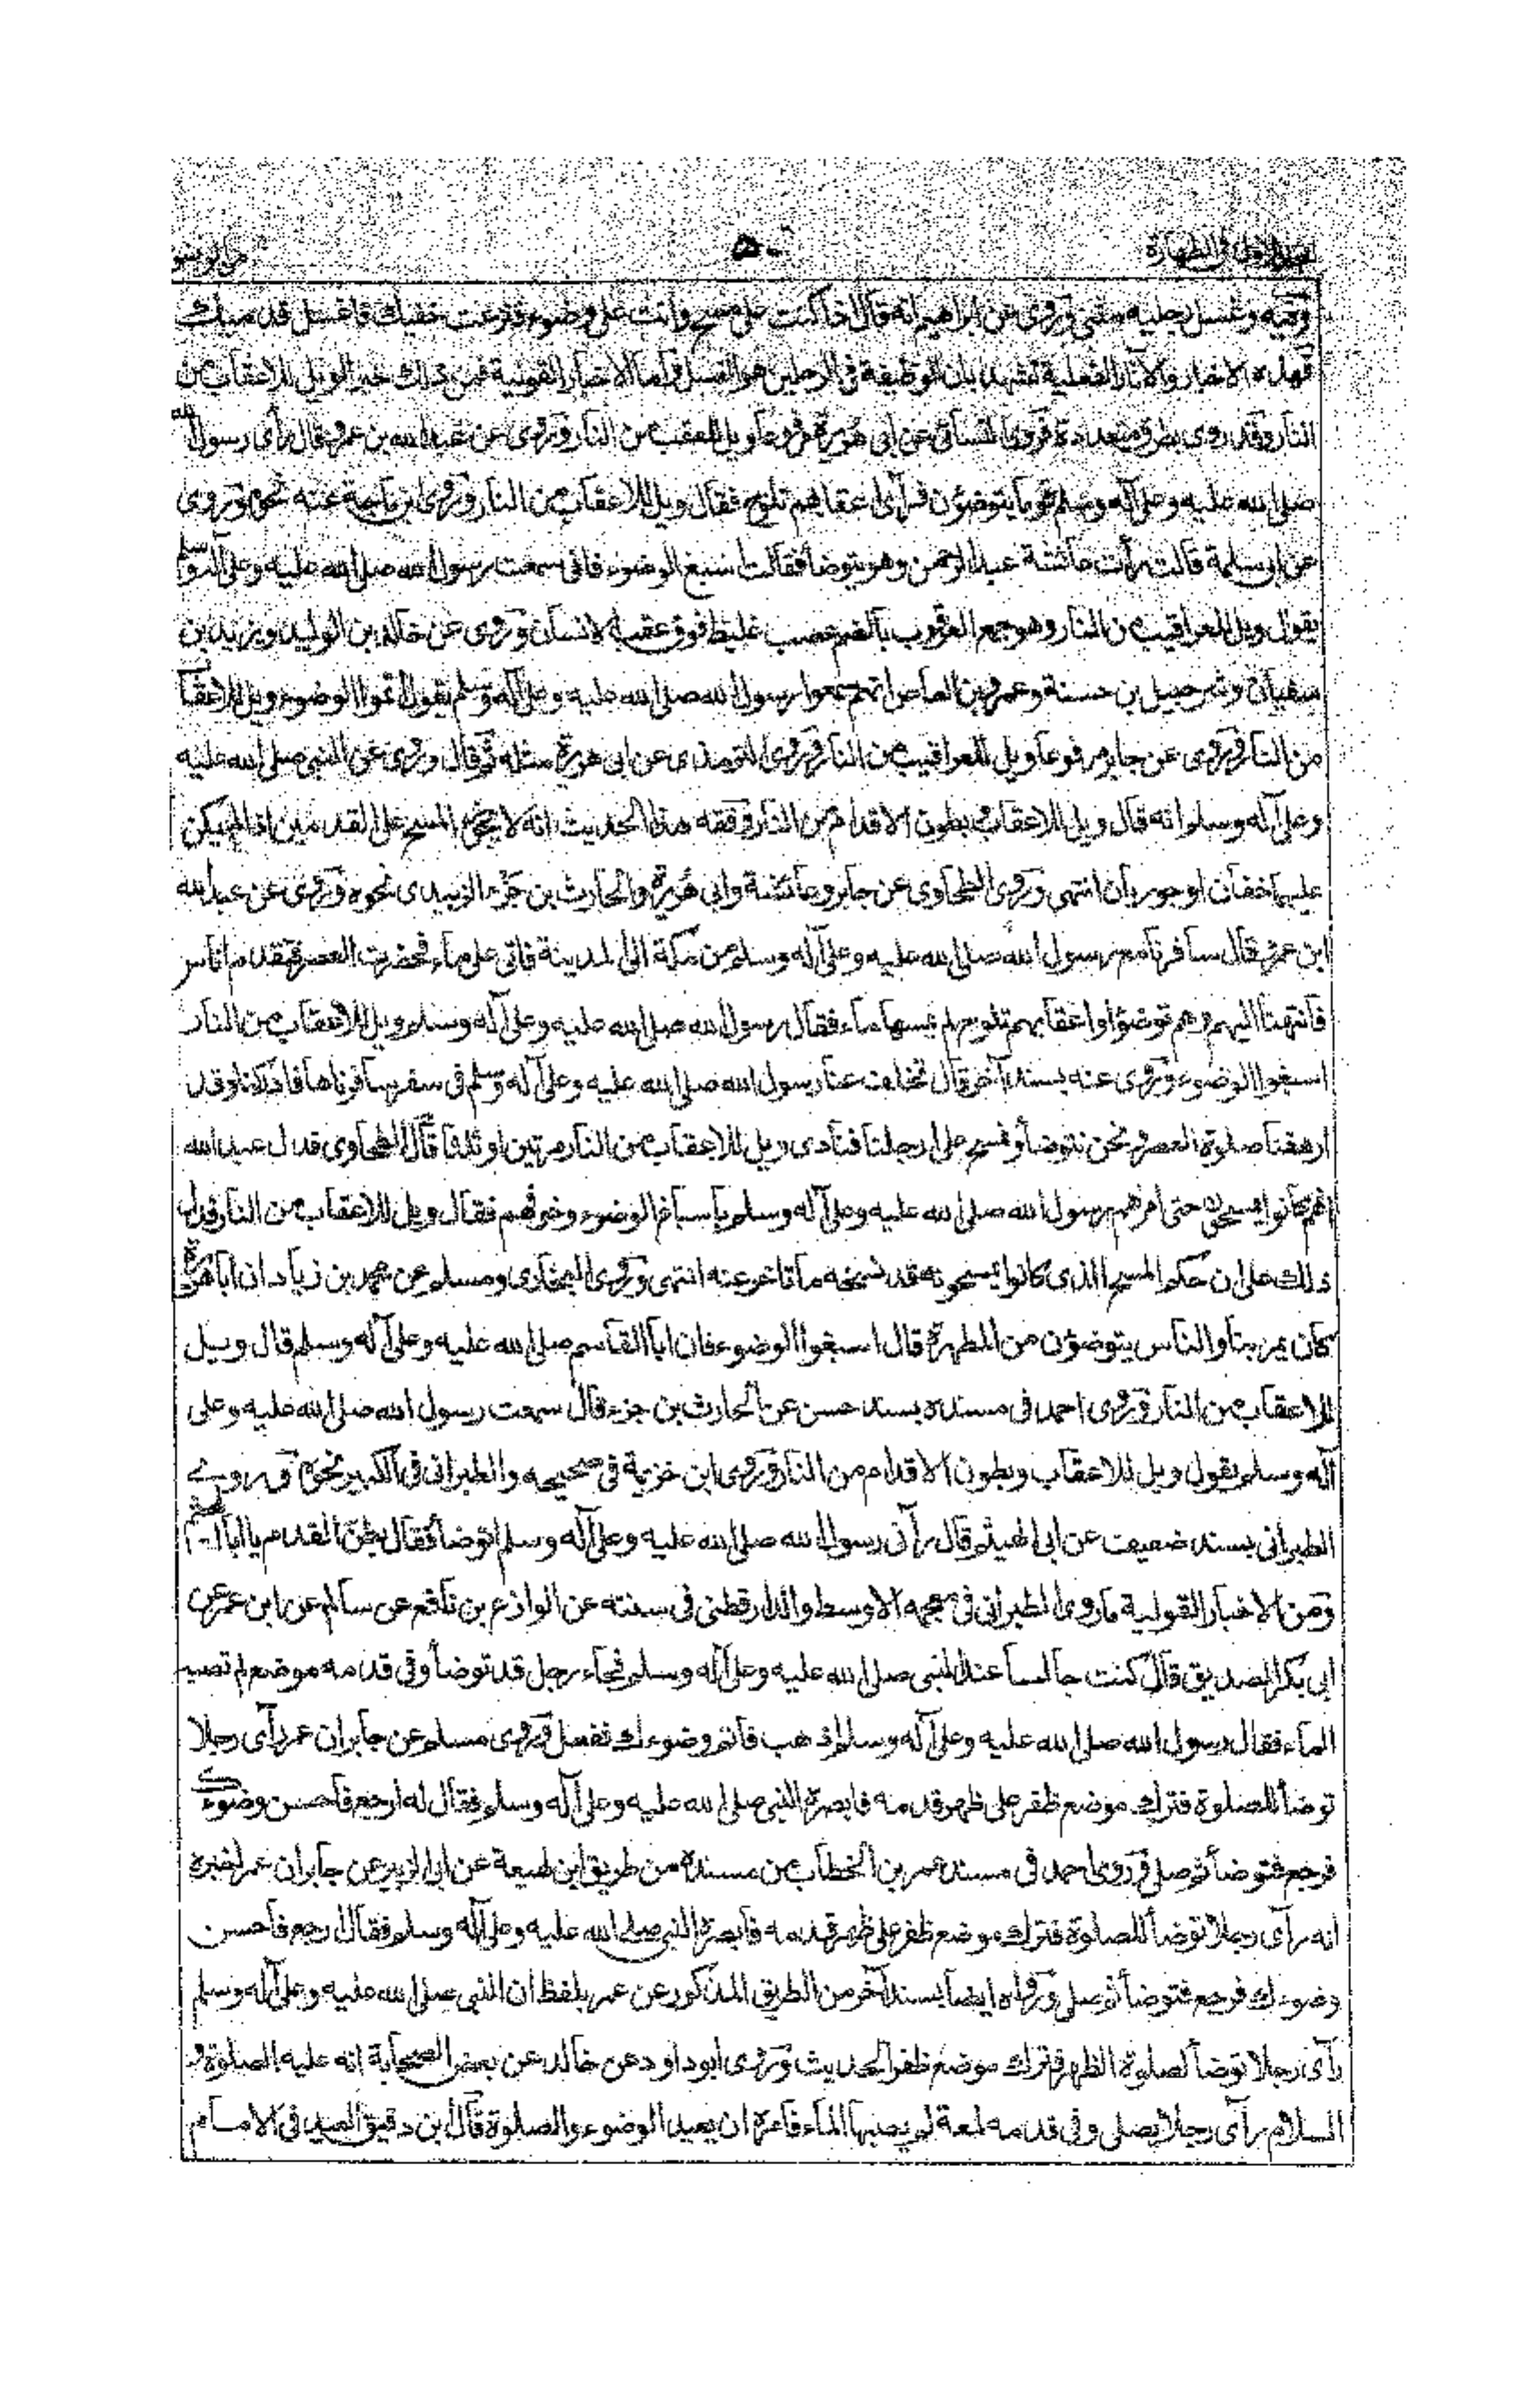 الطهارة ٥٠
وغسل رجليه وروى عن ابراهيم انه قال اذا كنت على مسح وانت على وضوء فنزعت خفيك فاغسل قدميك
فهذه الاخبار والآثار الفعلية تشهد بان الوظيفة فى الرجلين هو الغسل واما الاخبار القولية فمن ذلك خبر الويل للاعقاب من
النار وقد روى بطرق متعددة فروى النسائى عن ابى هريرة مرفوعا ويل للعقب من النار وروى عن عبد الله بن عمرو قال رأى رسول الله
صلى الله عليه وعلى آله وسلم قوما يتوضؤن فرأى اعقابهم تلوح فقال ويل للاعقاب من النار وروى ابن ماجة عنه نحوه وروى
عن ابى سلمة قالت رأت عائشة عبد الرحمن وهو يتوضأ فقالت اسبغ الوضوء فانى سمعت رسول الله صلى الله عليه وعلى آله وسلم
يقول ويل للعراقيب من النار وهو جمع العرقوب بالضم عصب غليظ فوق عقب الانسان وروى عن خالد بن الوليد ويزيد بن
سفيان وشرحبيل بن حسنة وعمرو بن العاص انهم سمعوا رسول الله صلى الله عليه وعلى آله وسلم يقول اتموا الوضوء ويل للاعقا
من النار وروى عن جابر مرفوعا ويل للعراقيب من النار وروى الترمذى عن ابى هريرة مثله ثم قال وروى عن النبى صلى الله عليه
وعلى آله وسلم انه قال ويل للاعقاب وبطون الاقدام من النار وفقه هذا الحديث انه لا يجوز المسح على القدمين اذا لم يكن
عليهما خفان او جوربان انتهى وروى الطحاوى عن جابر وعائشة وابى هريرة والحارث بن جزء الزبيدى نحوه وروى عن عبد الله
ابن عمرو قال سافرنا مع رسول الله صلى الله عليه وعلى آله وسلم من مكة الى المدينة فاتى على ماء فحضرت العصر فتقدم اناس
فانتهينا اليهم وهم توضؤا واعقابهم تلوح لم يمسها ماء فقال رسول الله صلى الله عليه وعلى آله وسلم ويل للاعقاب من النار
اسبغوا الوضوء وروى عنه بسند آخر قال تخلف عنا رسول الله صلى الله عليه وعلى آله وسلم فى سفر سافرناها فادركنا وقد
ارهقنا صلوة العصر ونحن نتوضأ ونمسح على ارجلنا فنادى ويل للاعقاب من النار مرتين او ثلثا قال الطحاوى فدل عبد الله
انهم كانوا يمسحون حتى امرهم رسول الله صلى الله عليه وعلى آله وسلم باسباغ الوضوء وخوفهم فقال ويل للاعقاب من النار فدل
ذلك على ان حكم المسح الذى كانوا يمسحونه قد نسخه ما تاخر عنه انتهى وروى البخارى ومسلم عن محمد بن زياد ان ابا هريرة
كان يمر بنا والناس يتوضؤن من المطهرة قال اسبغوا الوضوء فان ابا القاسم صلى الله عليه وعلى آله وسلم قال ويل
للاعقاب من النار وروى احمد فى مسنده بسند حسن عن الحارث بن جزء قال سمعت رسول الله صلى الله عليه وعلى
آله وسلم يقول ويل للاعقاب وبطون الاقدام من النار وروى ابن خزيمة فى صحيحه والطبرانى فى الكبير نحوه وروى
الطبرانى بسند ضعيف عن ابى الهيثم قال رآنى رسول الله صلى الله عليه وعلى آله وسلم اتوضأ فقال بطن القدم يا ابا الهيثم
ومن الاخبار القولية ما روى الطبرانى فى معجمه الاوسط والدارقطنى فى سننه عن الوازع بن نافع عن سالم عن ابن عمر عن
ابى بكر الصديق قال كنت جالسا عند النبى صلى الله عليه وعلى آله وسلم فجاء رجل قد توضأ وفى قدمه موضع لم تصبه
الماء فقال رسول الله صلى الله عليه وعلى آله وسلم اذهب فاتم وضوءك ففعل وروى مسلم عن جابر ان عمر رأى رجلا
توضأ للصلوة فترك موضع ظفر على ظهر قدمه فابصره النبى صلى الله عليه وعلى آله وسلم فقال له ارجع فاحسن وضوءك
فرجع فتوضأ ثم صلى وروى احمد فى مسند عمر بن الخطاب من مسنده من طريق ابن لهيعة عن ابى الزبير عن جابر ان عمر اخبره
انه رأى رجلا توضأ للصلوة فترك موضع ظفر على ظهر قدمه فابصره النبى صلى الله عليه وعلى آله وسلم فقال ارجع فاحسن
وضوءك فرجع فتوضأ ثم صلى ورواه ايضا بسند آخر من الطريق المذكور عن عمر بلفظ ان النبى صلى الله عليه وعلى آله وسلم
رأى رجلا توضأ لصلوة الظهر فترك موضع ظفر الحديث وروى ابو داود عن خالد عن بعض الصحابة انه عليه الصلوة و
السلام رأى رجلا يصلى وفى قدمه لمعة لم يصبها الماء فامره ان يعيد الوضوء والصلوة قال ابن دقيق العيد فى الامام